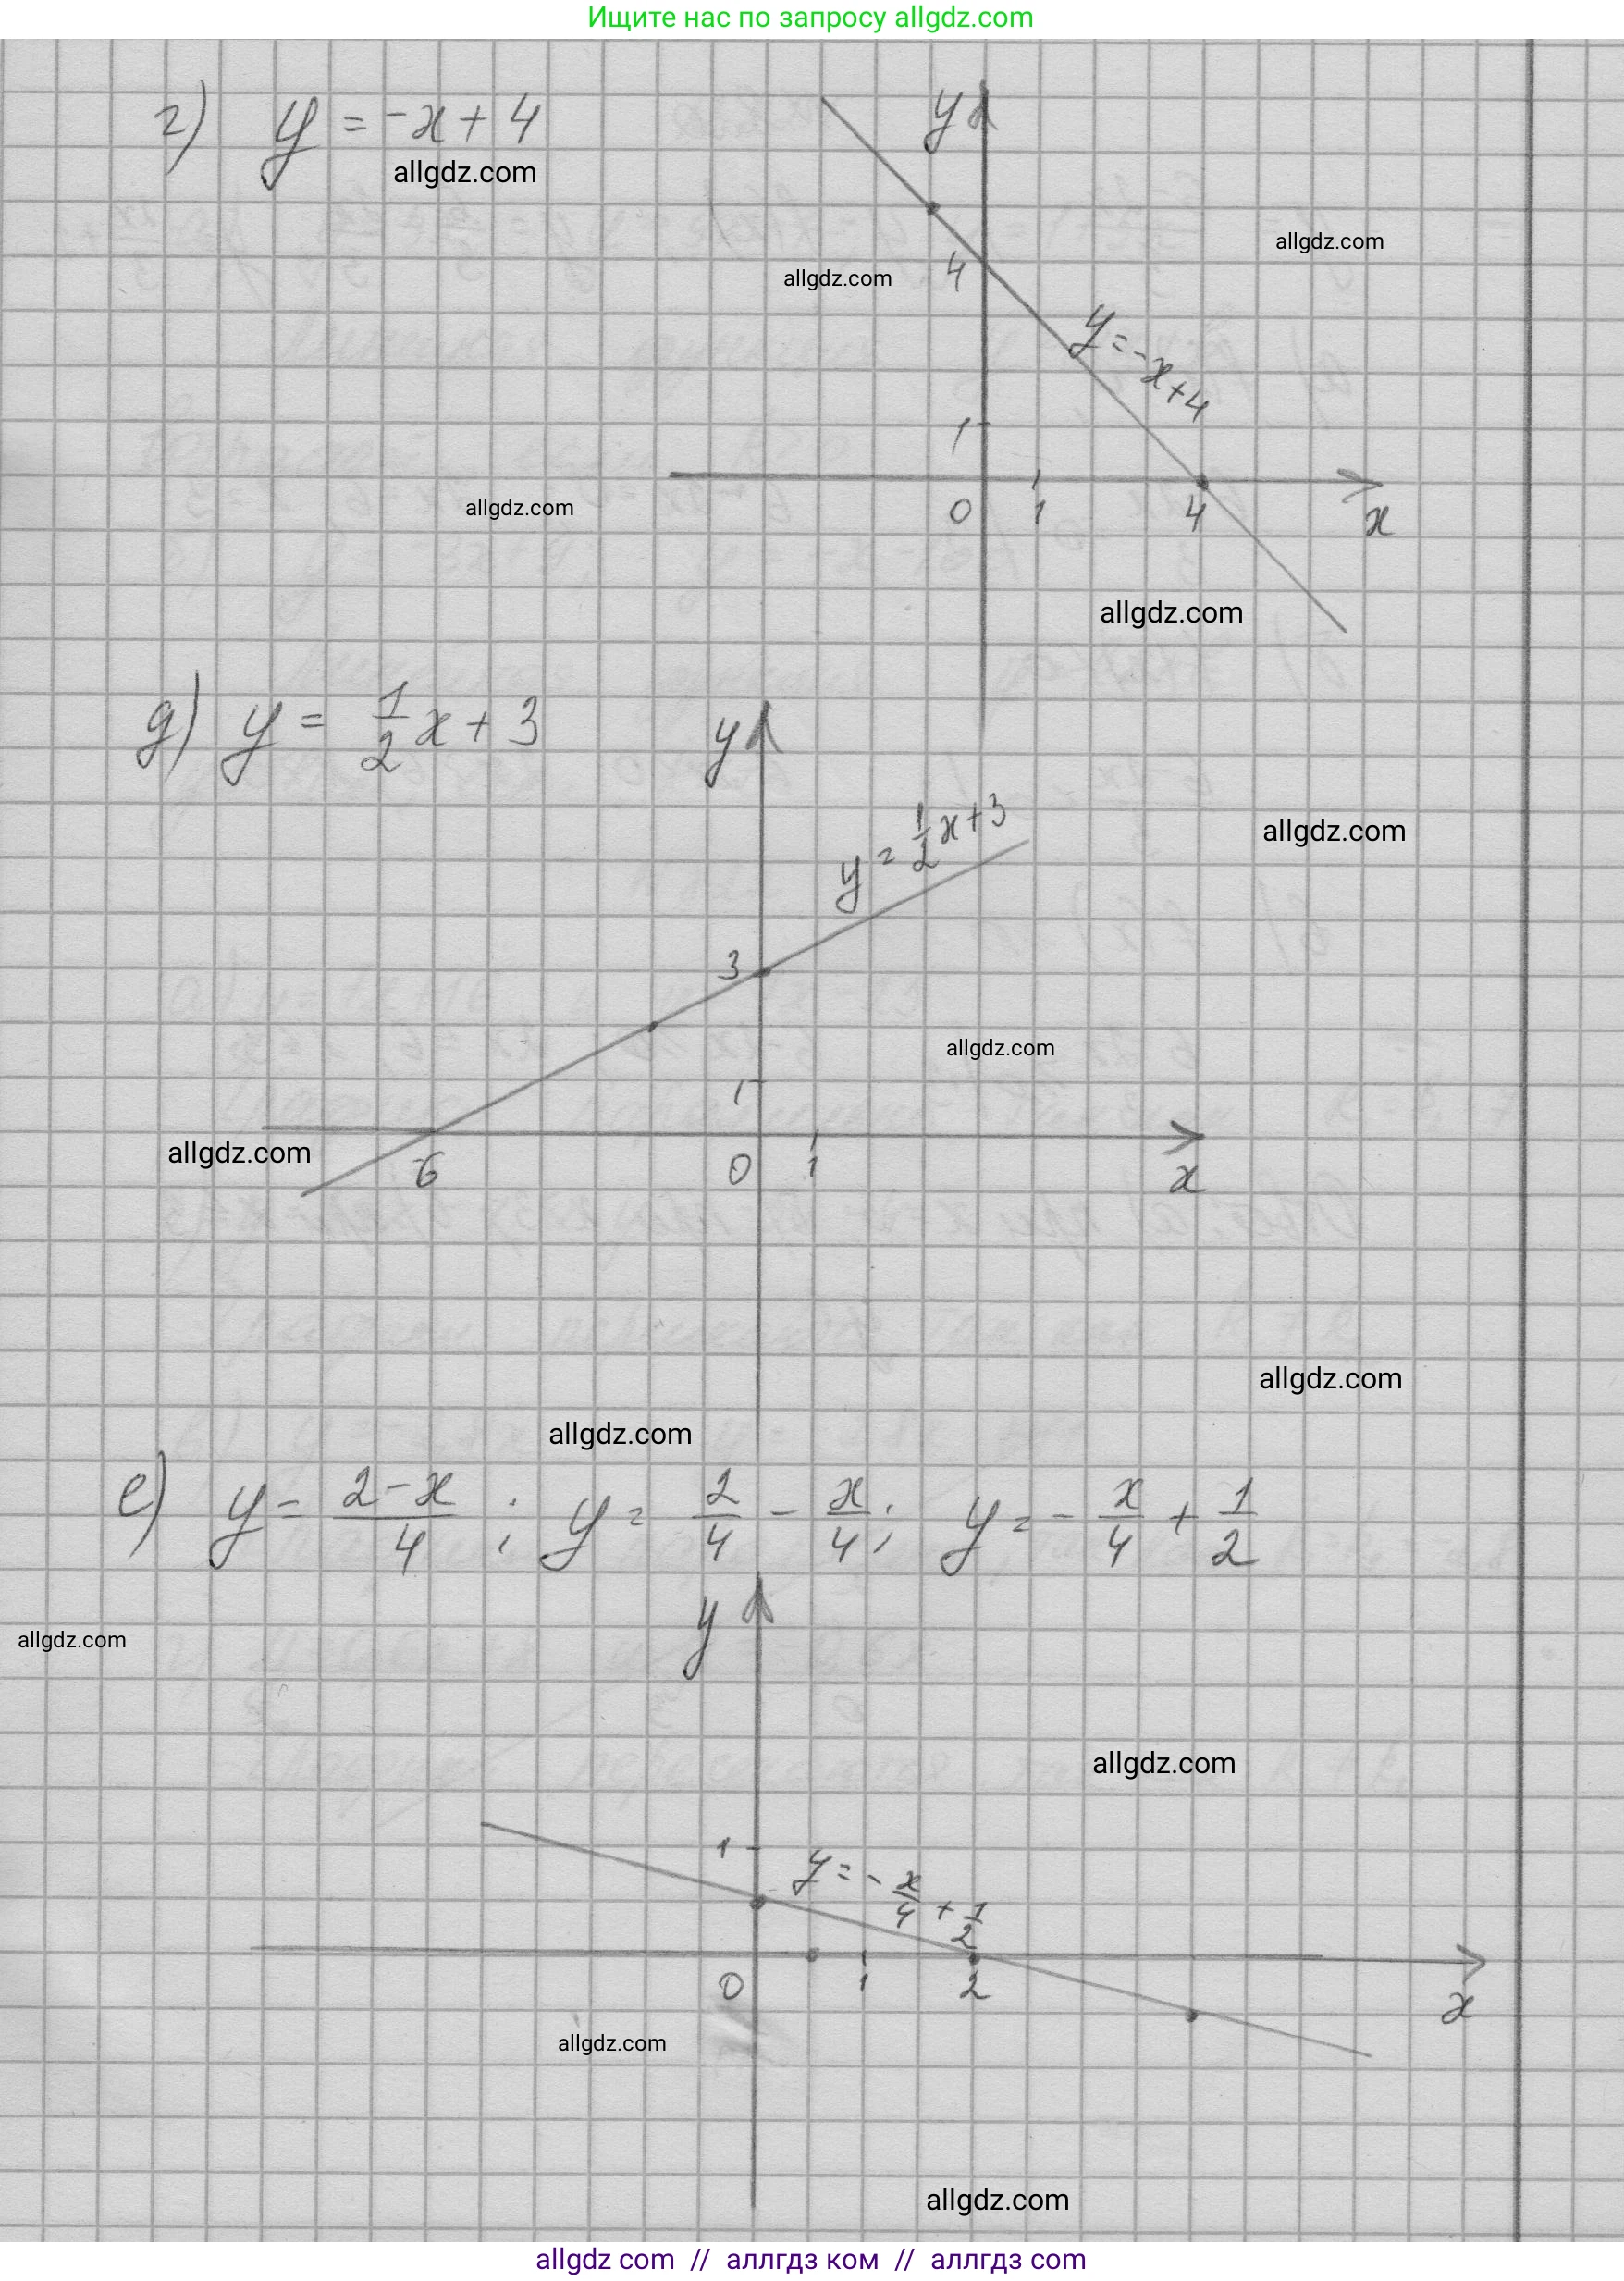 Ищите нас по запросу allgdz.com
г) y = -x + 4
allgdz.com
y
allgdz.com
4
allgdz.com
y = -x + 4
1
allgdz.com
0 1 4 x
allgdz.com
д) y = 1/2 x + 3
y
y = 1/2 x + 3
allgdz.com
3
allgdz.com
1
allgdz.com
-6 0 1 x
allgdz.com
allgdz.com
е) y = (2-x)/4 ; y = 2/4 - x/4 ; y = - x/4 + 1/2
y
allgdz.com
allgdz.com
1
y = - x/4 + 1/2
0 1 2 x
allgdz.com
allgdz.com
allgdz com // аллгдз ком // аллгдз com